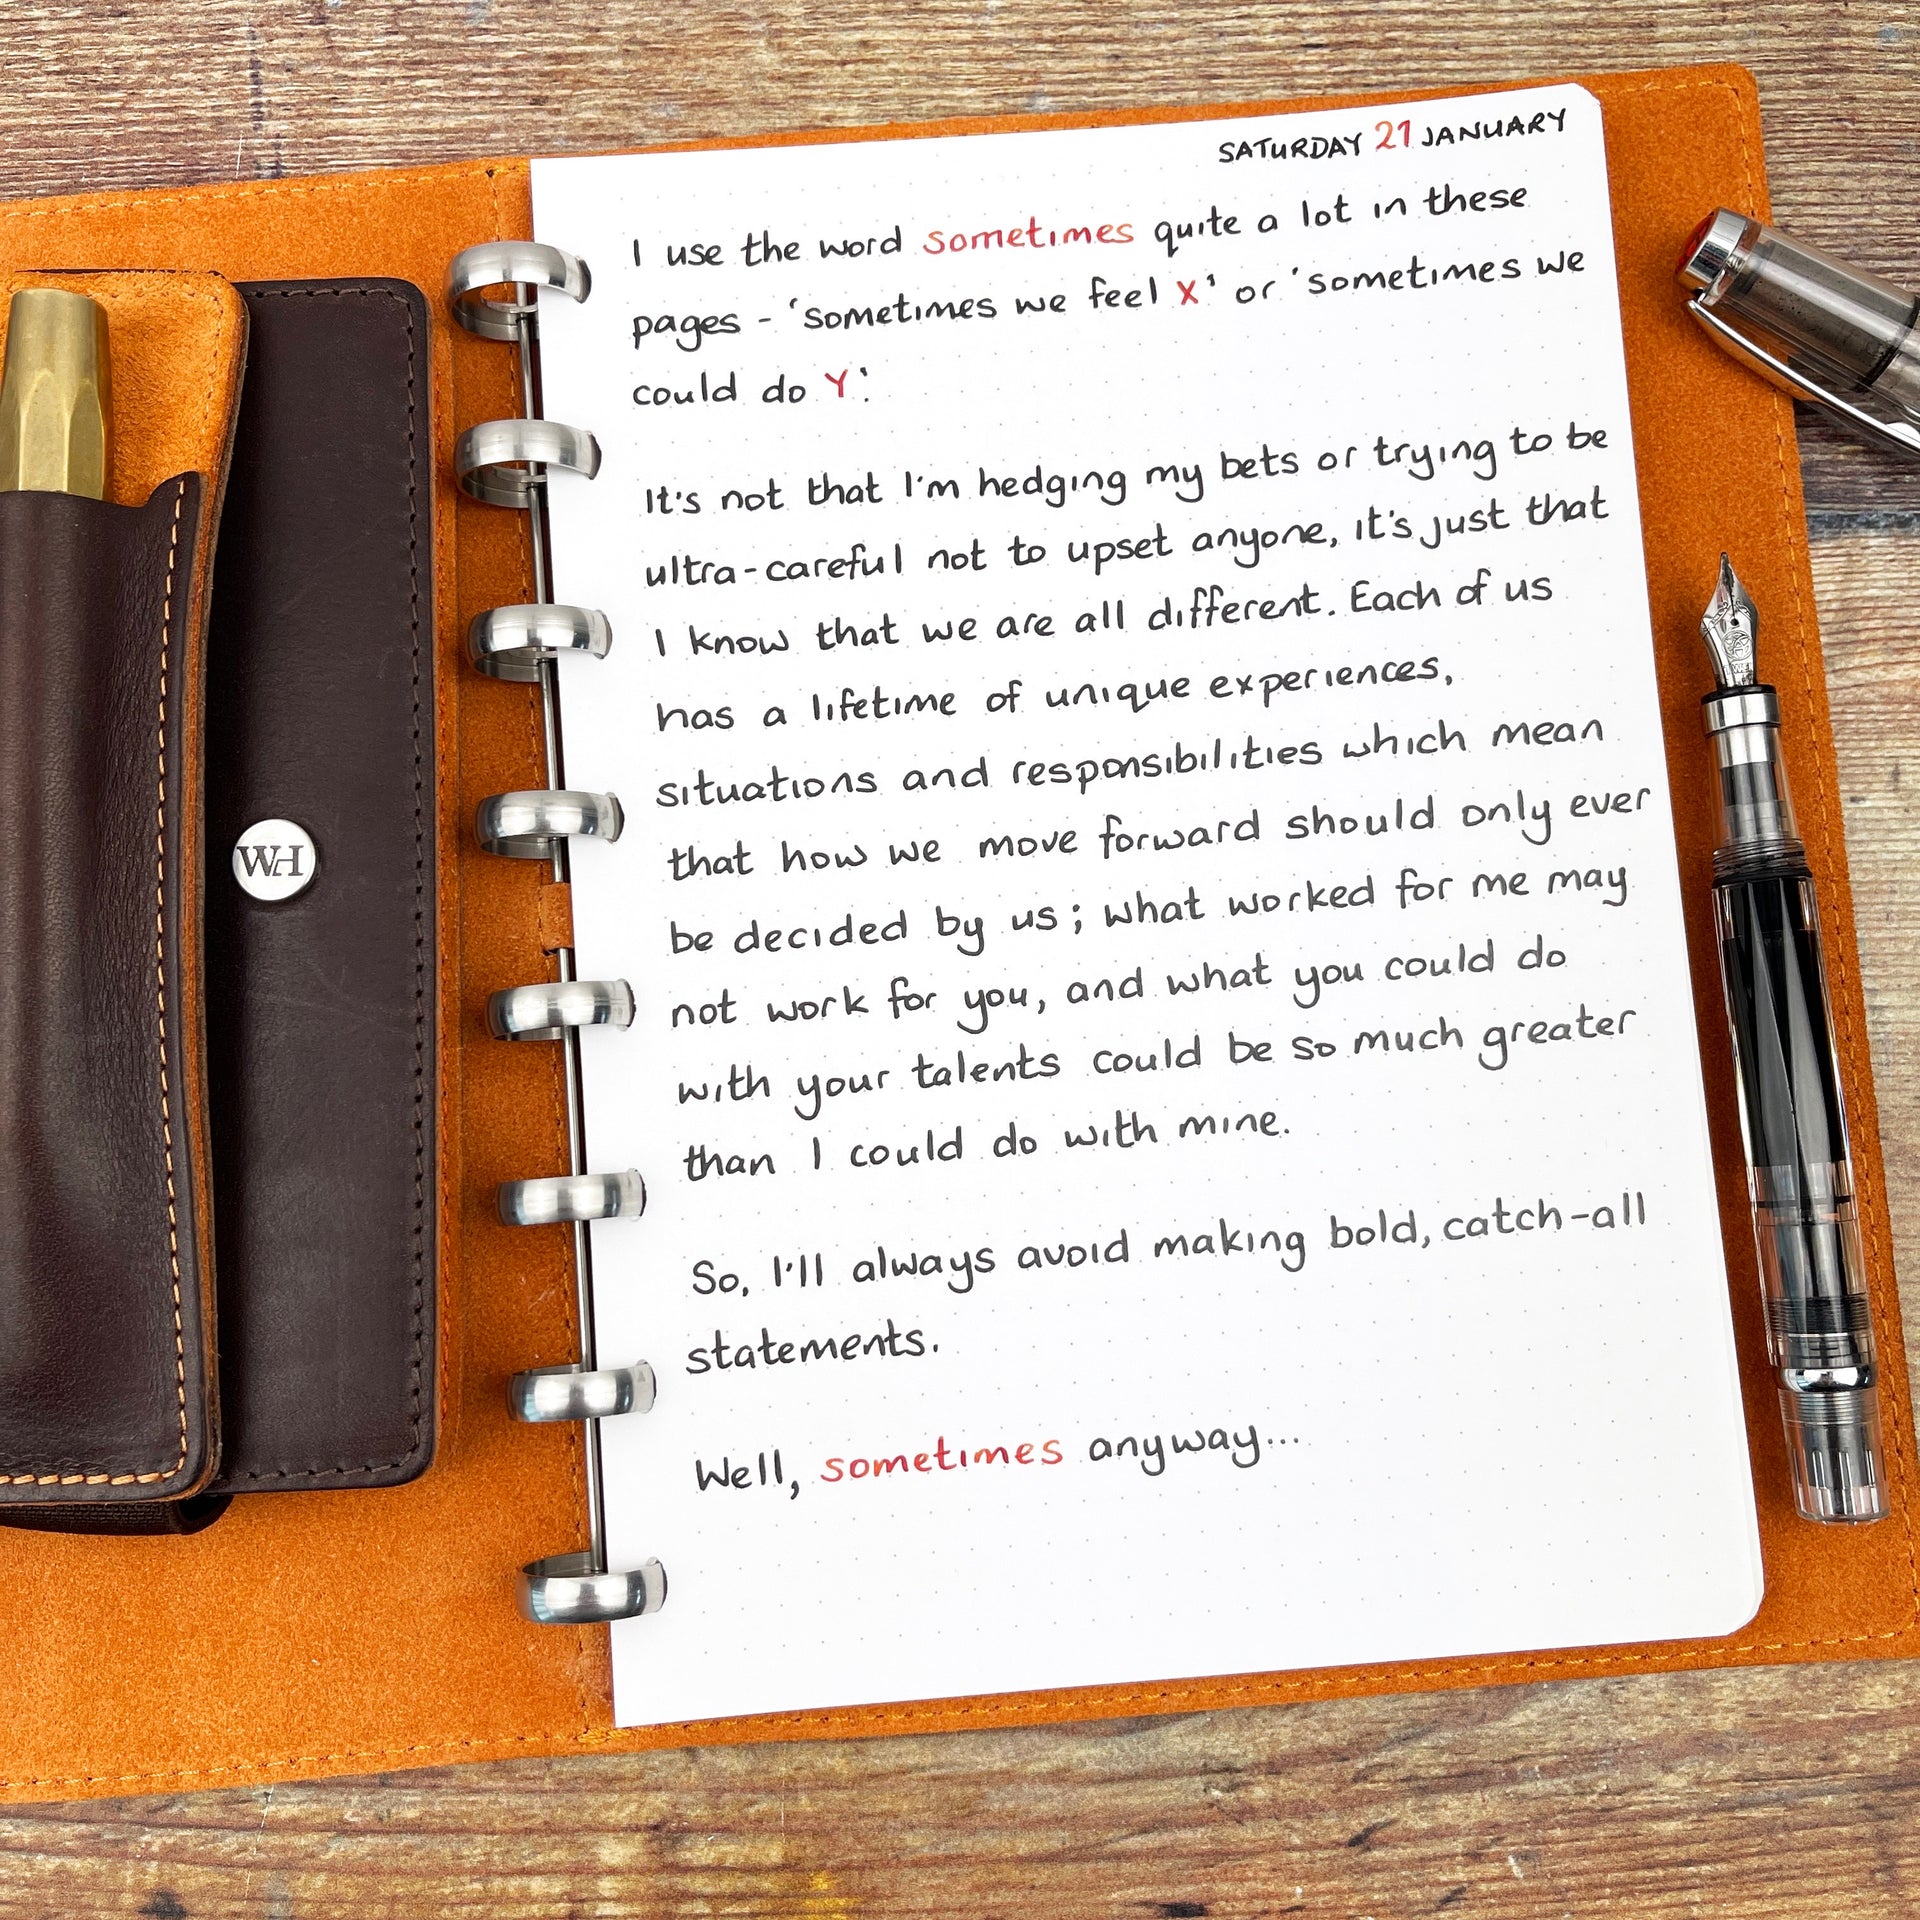 SATURDAY 21 JANUARY
I use the word sometimes quite a lot in these
pages - 'sometimes we feel X' or 'sometimes we
could do Y'.
It's not that I'm hedging my bets or trying to be
ultra-careful not to upset anyone, it's just that
I know that we are all different. Each of us
has a lifetime of unique experiences,
situations and responsibilities which mean
that how we move forward should only ever
be decided by us; what worked for me may
not work for you, and what you could do
with your talents could be so much greater
than I could do with mine.
So, I'll always avoid making bold, catch-all
statements.
Well, sometimes anyway...
WH